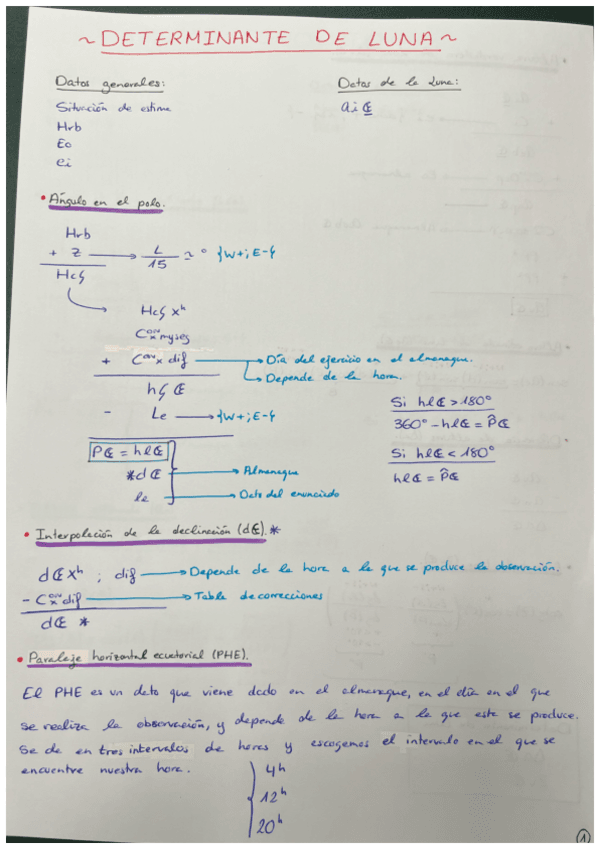 ~ DETERMINANTE DE LUNA ~
Datos generales:
Situación de estima
Hrb
Eo
ei
Datos de la luna:
ai ☾
• Ángulo en el polo.
Hrb
+ Z → L/15 ≃ ° {W+; E-}
HcG
HcG xʰ
Cᵒʳʳₓ myseg
+ Cᵒʳʳₓ dif → Día del ejercicio en el almanaque.
→ Depende de la hora.
hG ☾
- Le → {W+; E-}
P☾ = hl☾
*d☾ → Almanaque
le → Dato del enunciado
Si hl☾ > 180°
360° - hl☾ = P̂☾
Si hl☾ < 180°
hl☾ = P̂☾
• Interpolación de la declinación (d☾). *
d☾xʰ ; dif → Depende de la hora a la que se produce la observación.
- Cᵒʳʳₓ dif → Tabla de correcciones
d☾ *
• Paralaje horizontal ecuatorial (PHE).
El PHE es un dato que viene dado en el almanaque, en el día en el que
se realiza la observación, y depende de la hora a la que este se produce.
Se da en tres intervalos de horas y escogemos el intervalo en el que se
encuentre nuestra hora.
4ʰ
12ʰ
20ʰ
1